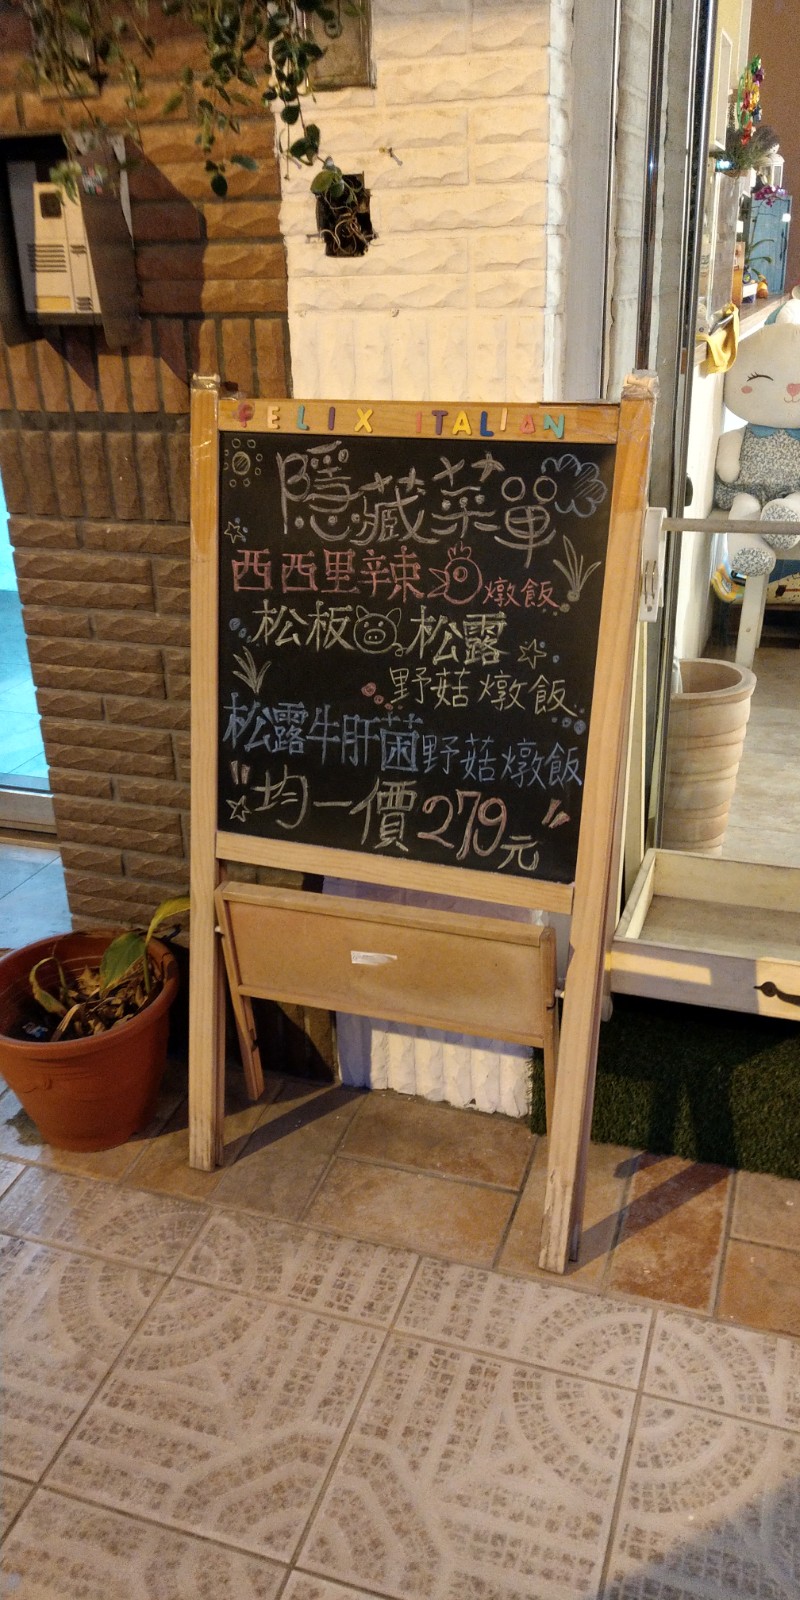 FELIX ITALIAN
隱藏菜單
西西里辣燉飯
松板松露
野菇燉飯
松露牛肝菌野菇燉飯
"均一價279元"